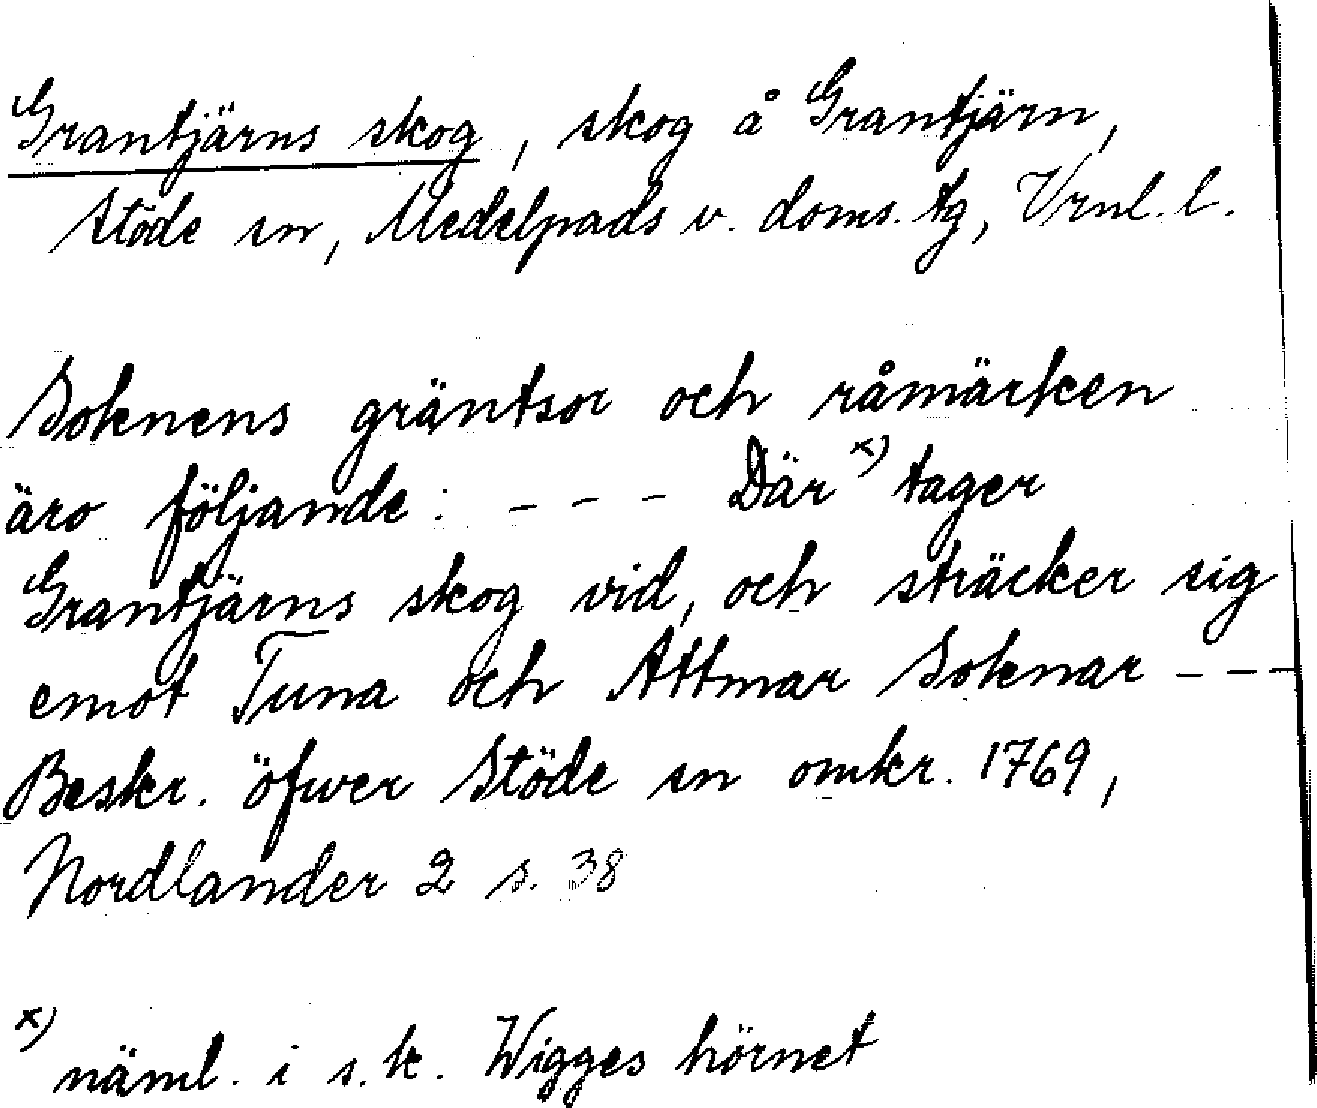 Grantjärns skog, skog å Grantjärn,
Stöde sn, Medelpads v. doms. tg, Vrnl. l.
Soknens gräntsor och råmärken
äro följande: - - - Där x) tager
Grantjärns skog vid, och sträcker sig
emot Tuna och Attmar Soknar - - -
Beskr. öfwer Stöde sn omkr. 1769,
Nordlander 2 s. 38
x) näml. i s.k. Wigges hörnet